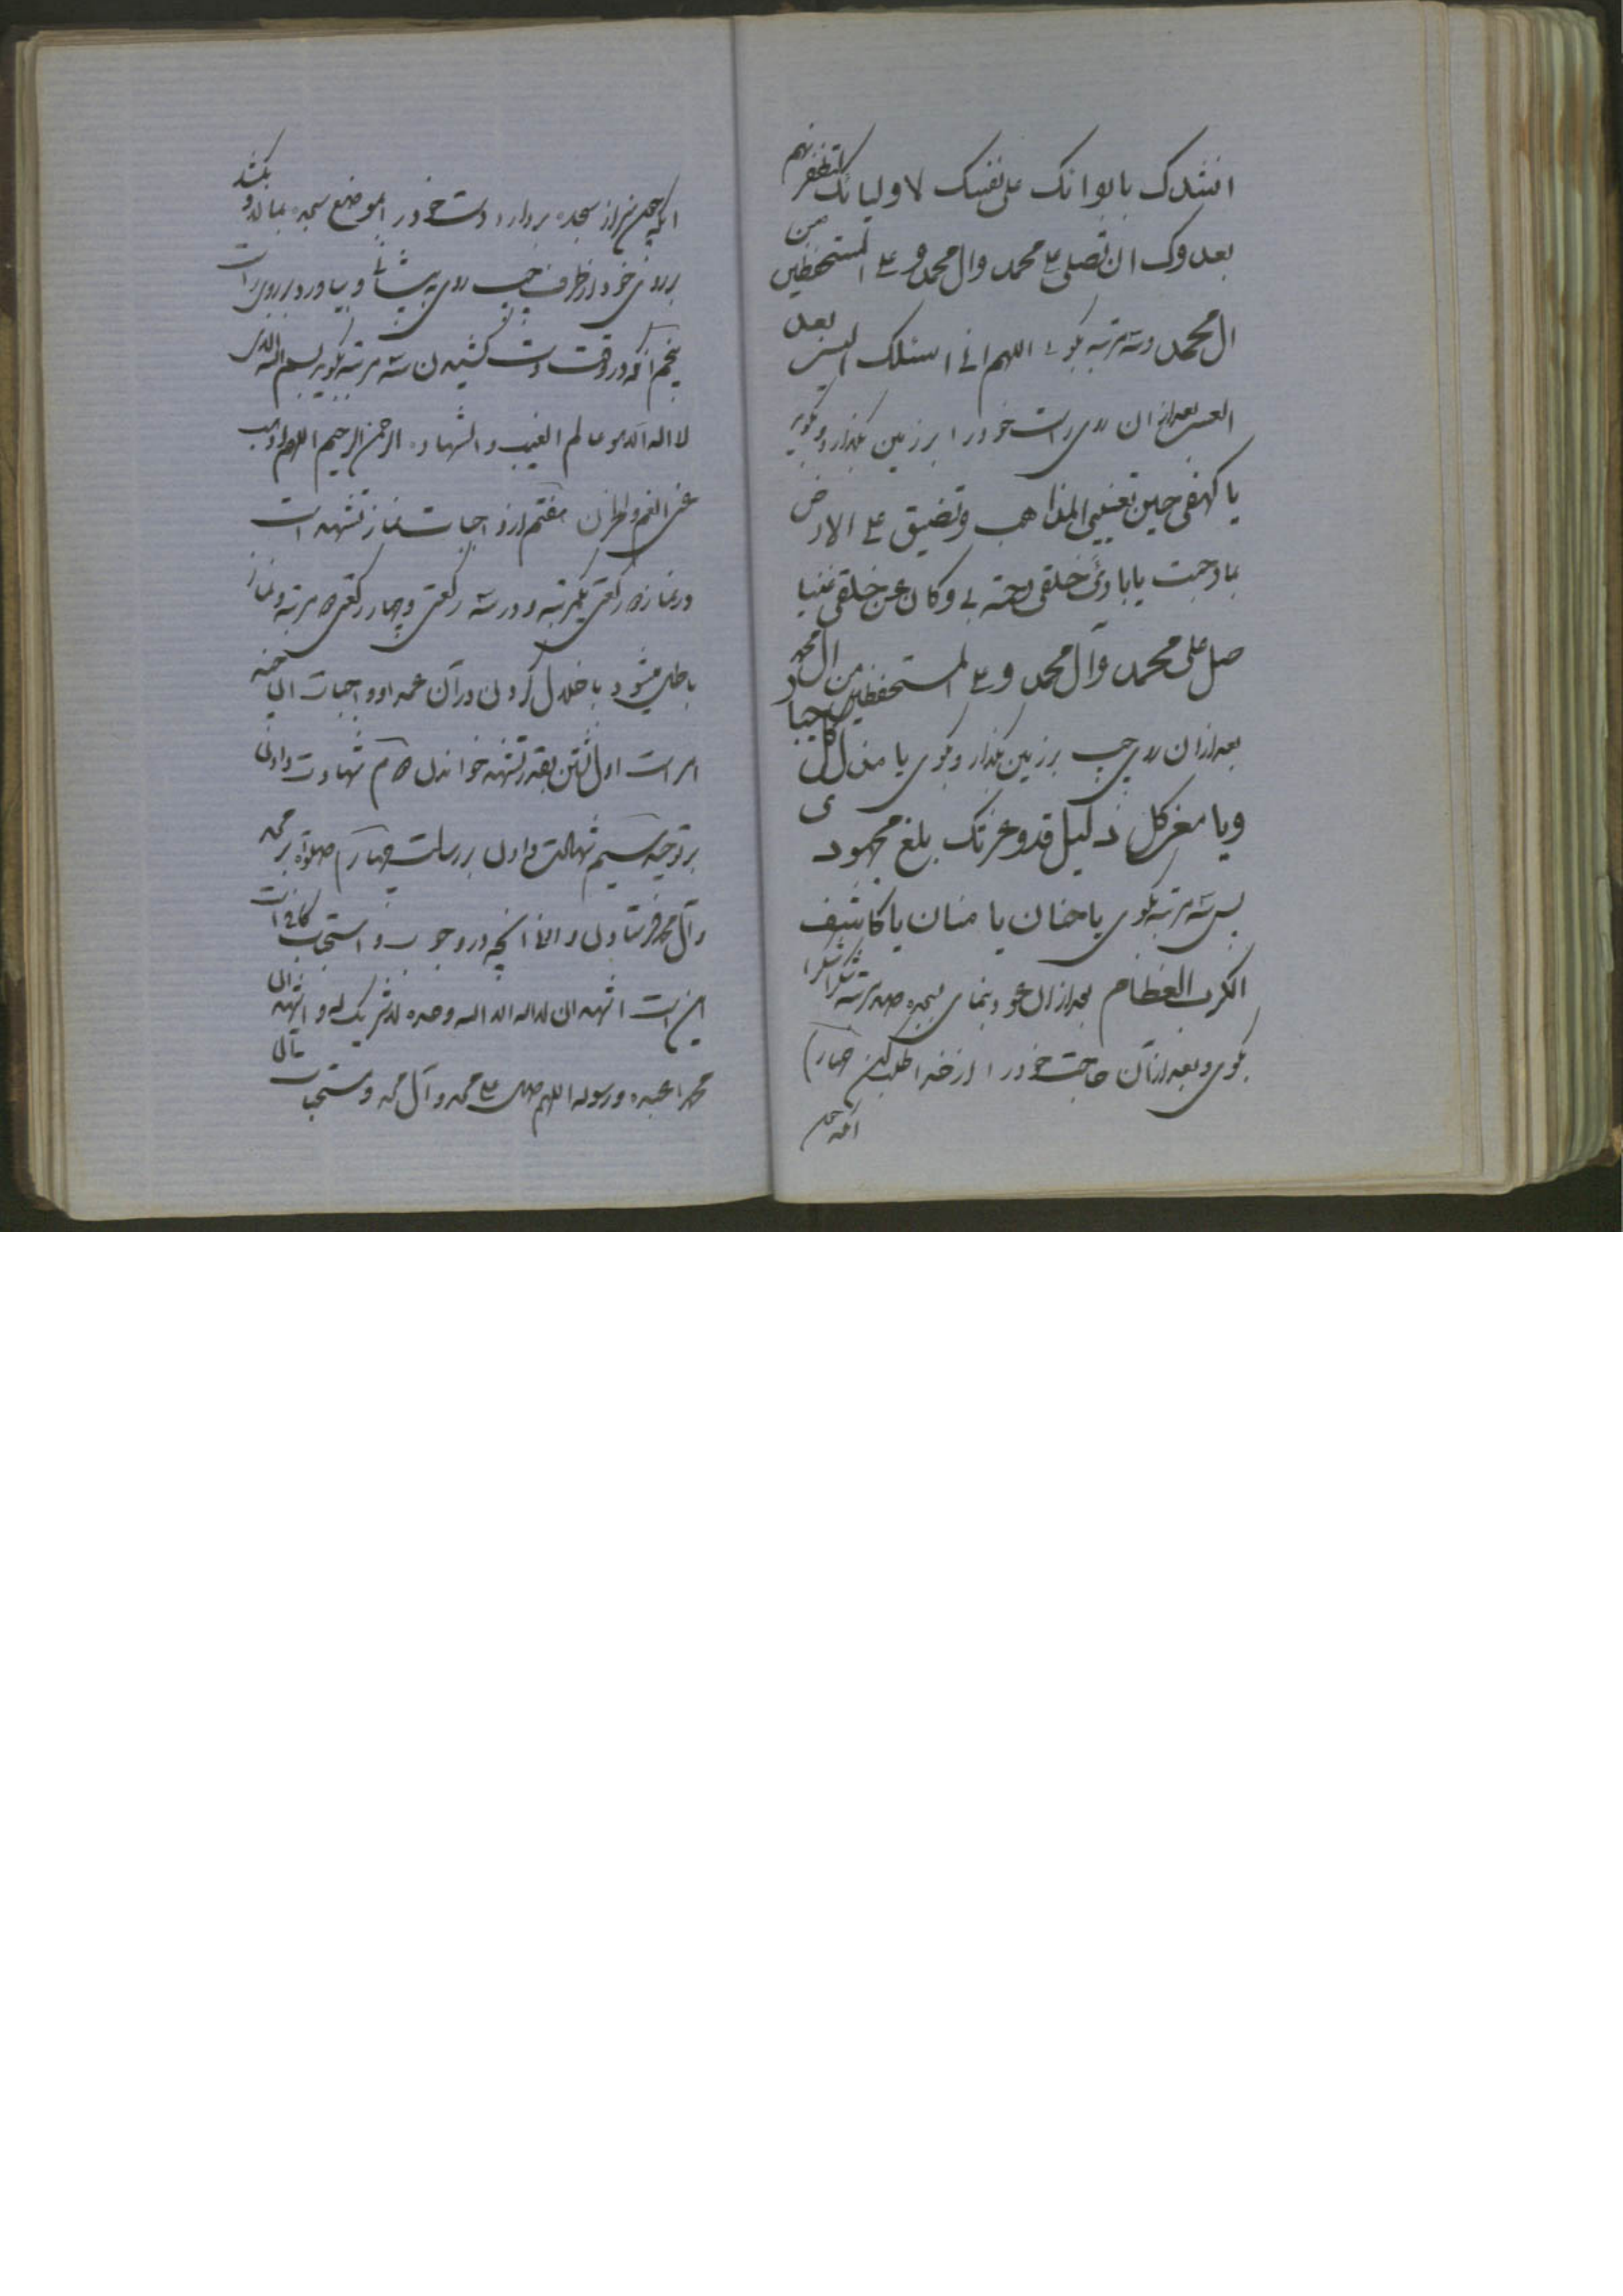 انشدک بایوائک علی نفسک لاولیائک لتظفرنهم
بعدوک ان تصلی علی محمد وال محمد و علی المستحفظین من
ال محمد وسه مرتبه بکوید اللهم انی اسئلک الیسر بعد
العسر بعد از ان روی راست خود را بر زمین بگذارد و بگوید
یا کهفی حین تعیینی المذاهب وتضیق علی الارض
بما رحبت یا بارئ خلقی رحمة بی وکان عن خلقی غنیا
صل علی محمد وآل محمد و علی المستحفظین من ال محمد
بعد از ان روی چپ بر زمین بگذار و بگوی یا مذل کل جبار
ویا معز کل ذلیل قد وعزتک بلغ مجهودی
پس سه مرتبه بگوی یا حنان یا منان یا کاشف
الکرب العظام بعد از ان عود بنمای بسجده صد مرتبه شکرا شکرا
بگوی و بعد از آن حاجت خود را از خدا طلب کن چهارم
آنکه چون
آنکه چون سر از سجده بردارد دست خود را بموضع سجده بمالد و بکشد
بر روی خود از طرف چپ روی به پیشانی و بیاورد بر روی راست
پنجم آنکه در وقت دست کشیدن سه مرتبه بگوید بسم الله الذی
لا اله الا هو عالم الغیب و الشهاده الرحمن الرحیم اللهم اذهب
عنی الغم والحزن هفتم از واجبات نماز تشهد است
در نماز دو رکعتی یکمرتبه و در سه رکعتی و چهار رکعتی دو مرتبه و نماز
باطل میشود باخلال کردن در آن عمدا و واجبات ان پنج
امر است اول نشستن بقدر تشهد خواندن دوم شهادت دادن
بر توحید سیم شهادت دادن بر رسالت چهارم صلوة بر محمد
و آل محمد فرستادن و اما آنچه در وجوب و استحباب کافی است
این است اشهد ان لا اله الا الله وحده لا شریک له و اشهد ان
محمدا عبده و رسوله اللهم صل علی محمد و آل محمد و مستحبات آن